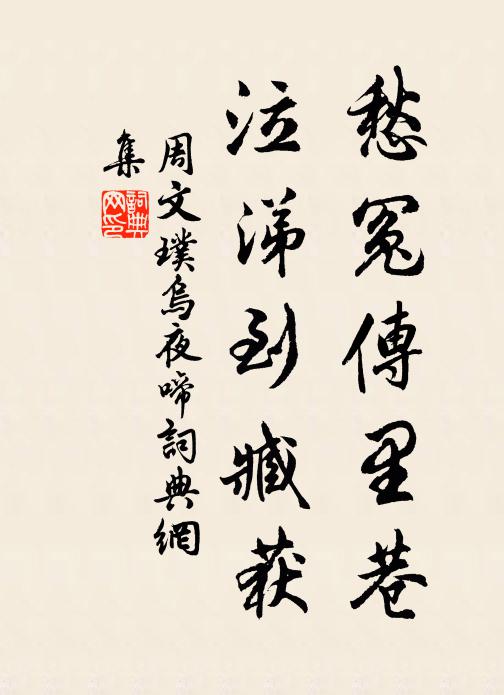 愁冤傳里巷
泣涕到臧获
周文璞烏夜啼詞典網
集
詞典網印